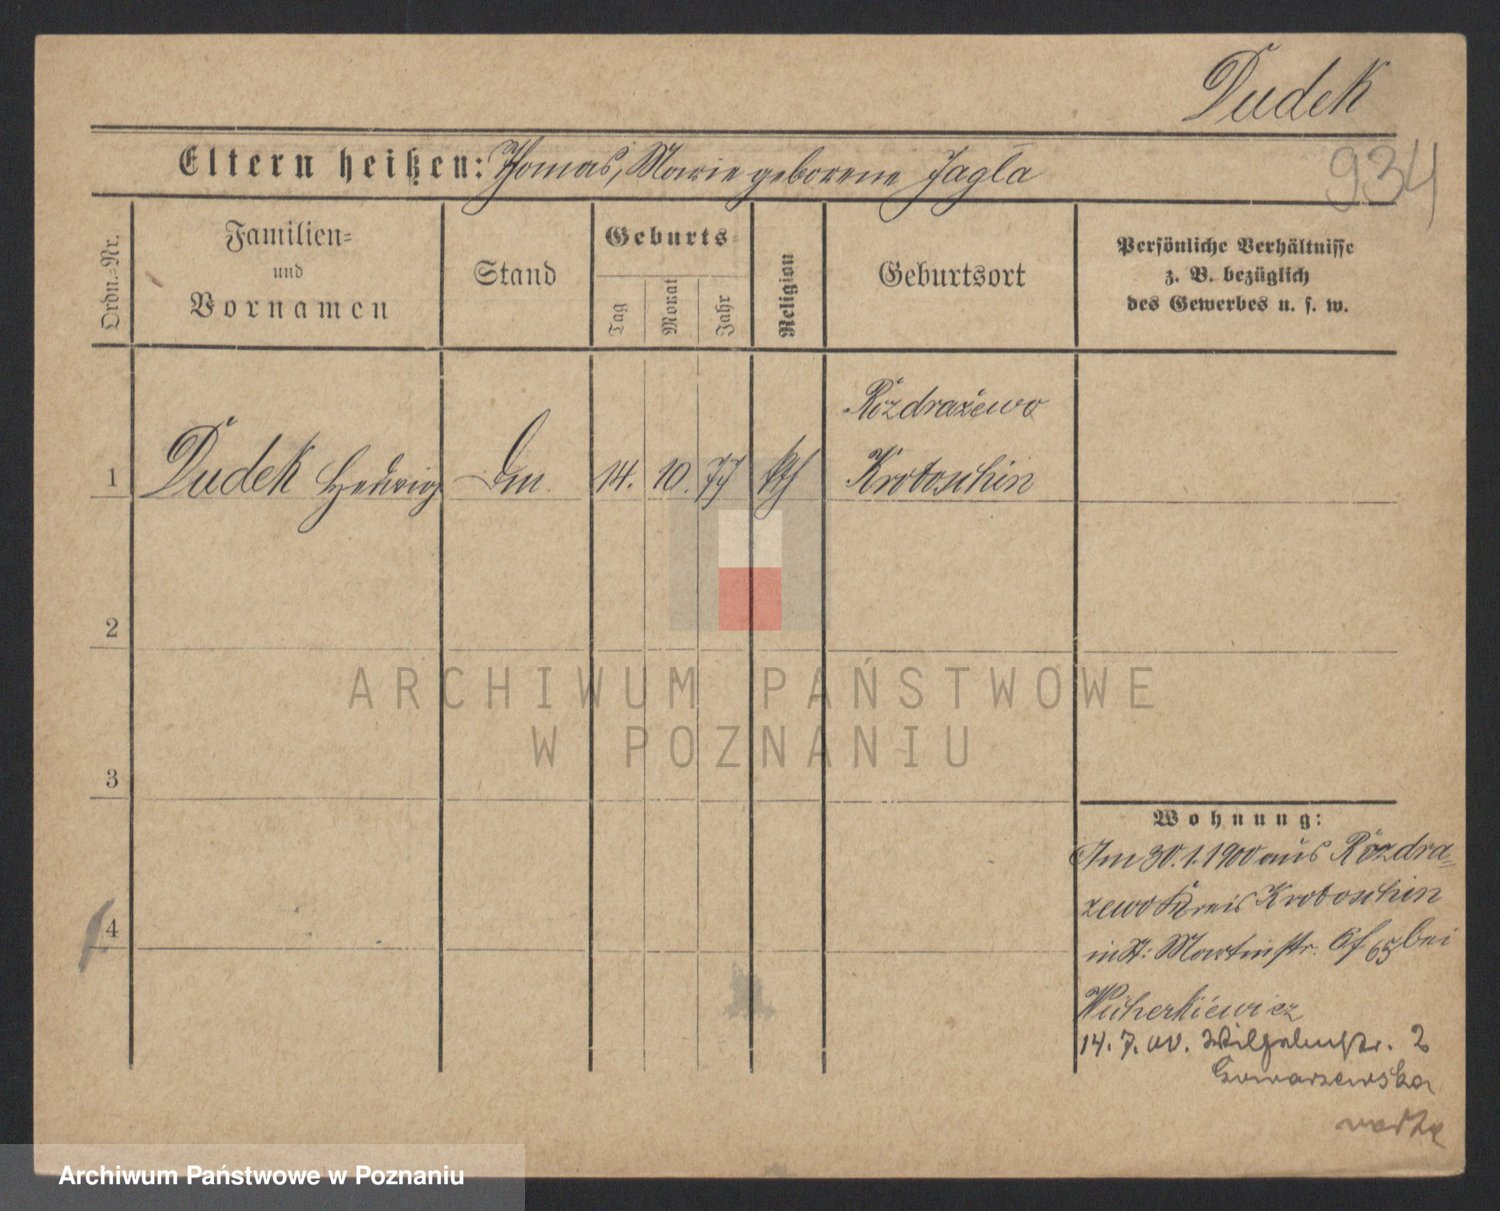 Dudek
934
Eltern heißen: Thomas, Marie geborene Jagla
Ordn.=Nr.
Familien=
und
Vornamen
Stand
Geburts=
Tag
Monat
Jahr
Religion
Geburtsort
Persönliche Verhältnisse
z. B. bezüglich
des Gewerbes u. s. w.
Rózdrażewo
1 Dudek Hedwig Dm. 14. 10. 77 kth Krotoschin
2
3
4
Wohnung:
Am 30.1.1900 aus Rózdra=
zewo Kreis Krotoschin
in St: Martinstr. 65 bei
14. 7. 00. Wilhelmstr. 2
ARCHIWUM PAŃSTWOWE
W POZNANIU
Archiwum Państwowe w Poznaniu